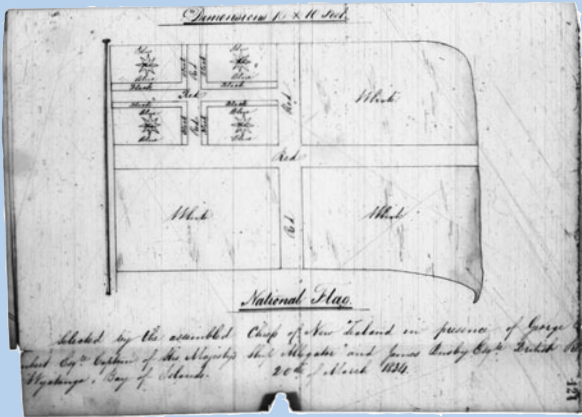 Dimensions 16 X 10 Feet.
Blue Blue
Blue Blue
Black Red Black
Black Black
Red
Black Black
Blue Blue
Blue Blue
Black Red Black
Red
White
Red
White
Red
White
National Flag.
Selected by the assembled Chiefs of New Zealand in presence of George
Esqre Captain of His Majesty's Ship Alligator and James Busby Esqre British
Bay of Islands. 20th of March 1834.
121